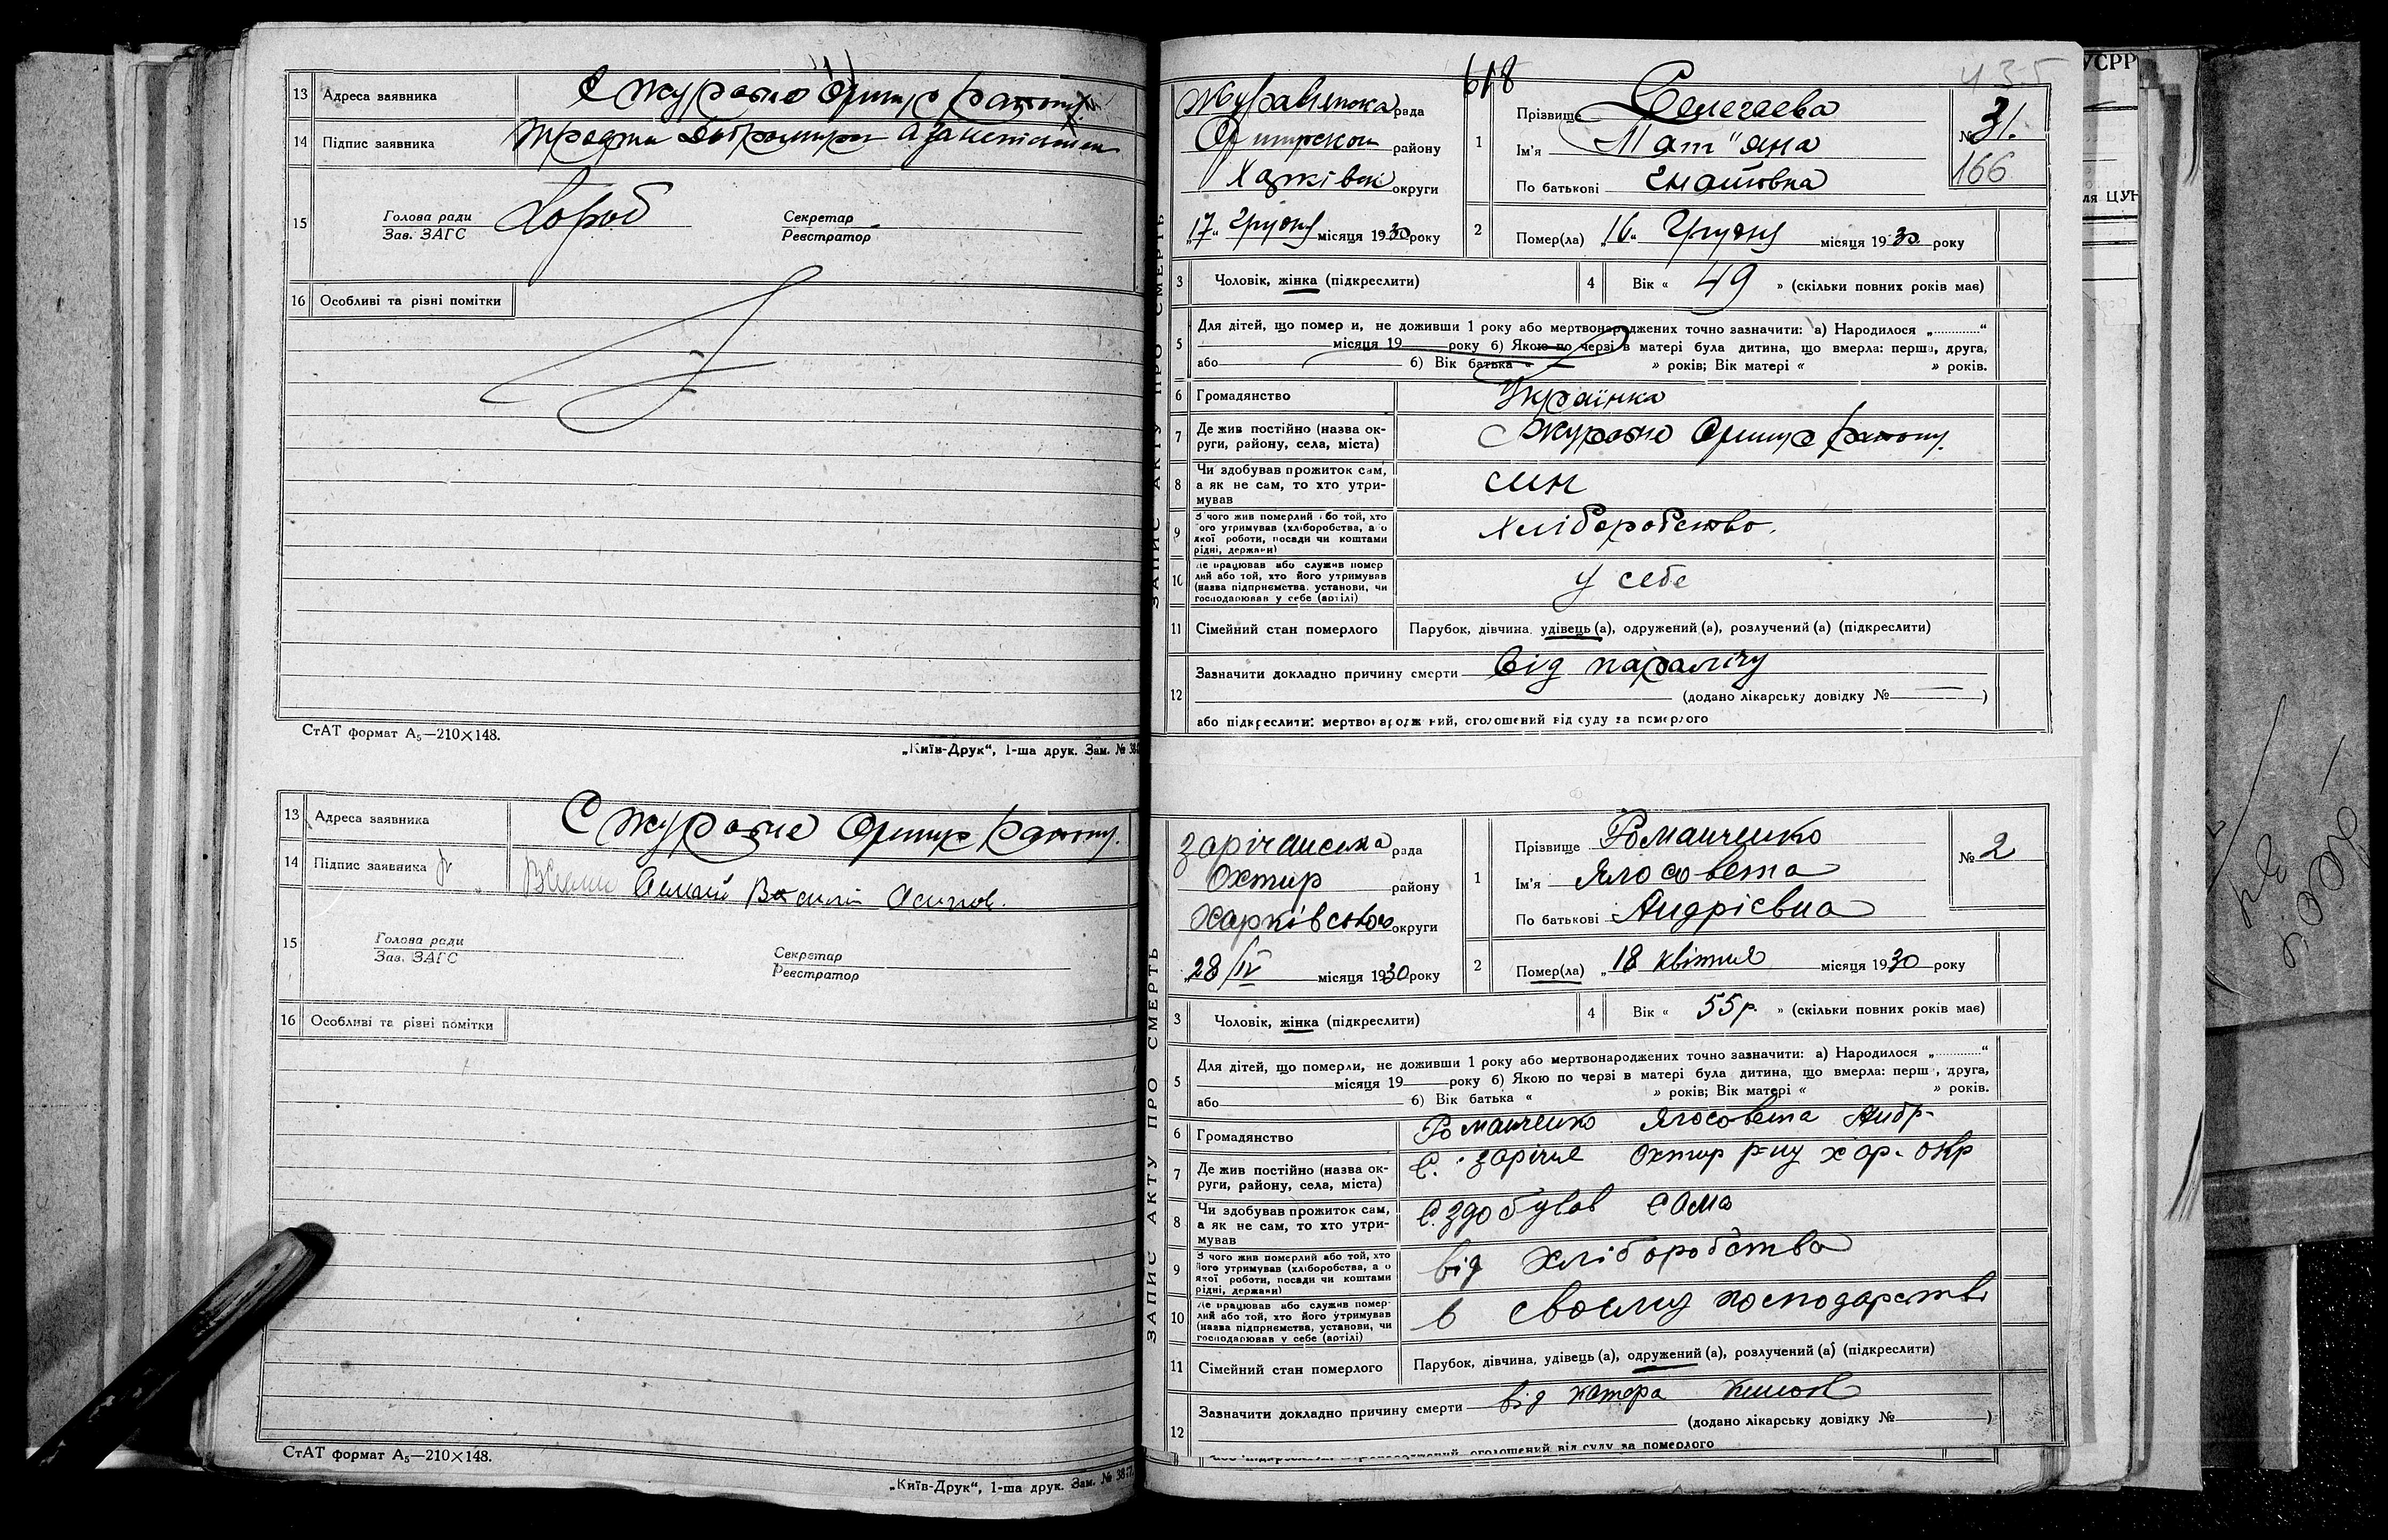 13 Адреса заявника
14 Підпис заявника
15 Голова ради
Зав. ЗАГС
Секретар
Реєстратор
16 Особливі та різні помітки
СтАТ формат А₅—210×148.
„Київ-Друк“, 1-ша друк. Зам. №
13 Адреса заявника
14 Підпис заявника Василь
15 Голова ради
Зав. ЗАГС
Секретар
Реєстратор
16 Особливі та різні помітки
СтАТ формат А₅—210×148.
„Київ-Друк“, 1-ша друк. Зам. №
УСРР
618
435
ЗАПИС АКТУ ПРО СМЕРТЬ
рада
району
округи
„17“ Грудня місяця 1930 року
1 Прізвище
Ім'я Мат"яна
По батькові Гнатовна
№ 31.
166
2 Помер(ла) „16“ Грудня місяця 1930 року
3 Чоловік, жінка (підкреслити)
4 Вік « 49 » (скільки повних років має)
5 Для дітей, що померли, не доживши 1 року або мертвонароджених точно зазначити: а) Народилося „............“
місяця 19 року б) Якою по черзі в матері була дитина, що вмерла: перша, друга,
або б) Вік батька « » років; Вік матері « » років.
6 Громадянство Українка
7 Де жив постійно (назва округи, району, села, міста)
8 Чи здобував прожиток сам, а як не сам, то хто утримував син
9 З чого жив померлий або той, хто його утримував (хліборобства, або якої роботи, посади чи коштами рідні, держави) Хліборобство.
10 Де працював або служив помер лий або той, хто його утримував (назва підприємства, установи, чи господарював у себе (артілі) у себе
11 Сімейний стан померлого Парубок, дівчина, удівець (а), одружений (а), розлучений (а) (підкреслити)
12 Зазначити докладно причину смерти від паралічу
(додано лікарську довідку № — )
або підкреслити: мертвонароджений, оголошений від суду за померлого
ЗАПИС АКТУ ПРО СМЕРТЬ
Зарічанська рада
Охтир району
Харківської округи
„28/IV місяця 1930 року
1 Прізвище Романченко
Ім'я Ялосовета
По батькові Андрієвна
№ 2
2 Помер(ла) „18 квітня місяця 1930 року
3 Чоловік, жінка (підкреслити)
4 Вік « 55 р. » (скільки повних років має)
5 Для дітей, що померли, не доживши 1 року або мертвонароджених точно зазначити: а) Народилося „............“
місяця 19 року б) Якою по черзі в матері була дитина, що вмерла: перш, друга,
або б) Вік батька « » років; Вік матері « » років.
6 Громадянство Романченко Ялосовета Андр-
7 Де жив постійно (назва округи, району, села, міста) С. Заріччя Охтир р-ну Хар. окр
8 Чи здобував прожиток сам, а як не сам, то хто утримував здобував сама
9 З чого жив померлий або той, хто його утримував (хліборобства, або якої роботи, посади чи коштами рідні, держави) від хліборобства
10 Де працював або служив померлий або той, хто його утримував (назва підприємства, установи, чи господарював у себе (артілі) в своєму господарстві
11 Сімейний стан померлого Парубок, дівчина, удівець (а), одружений (а), розлучений (а) (підкреслити)
12 Зазначити докладно причину смерти від катара кишок
(додано лікарську довідку № )
оголошений від суду за померлого